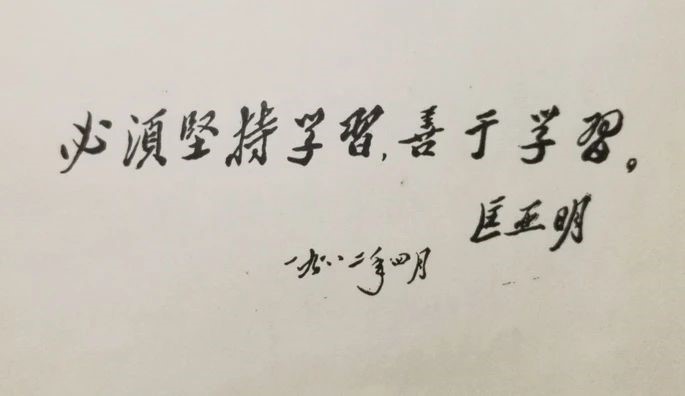 必須堅持学習，善于学習。
匡亚明
一九八二年四月